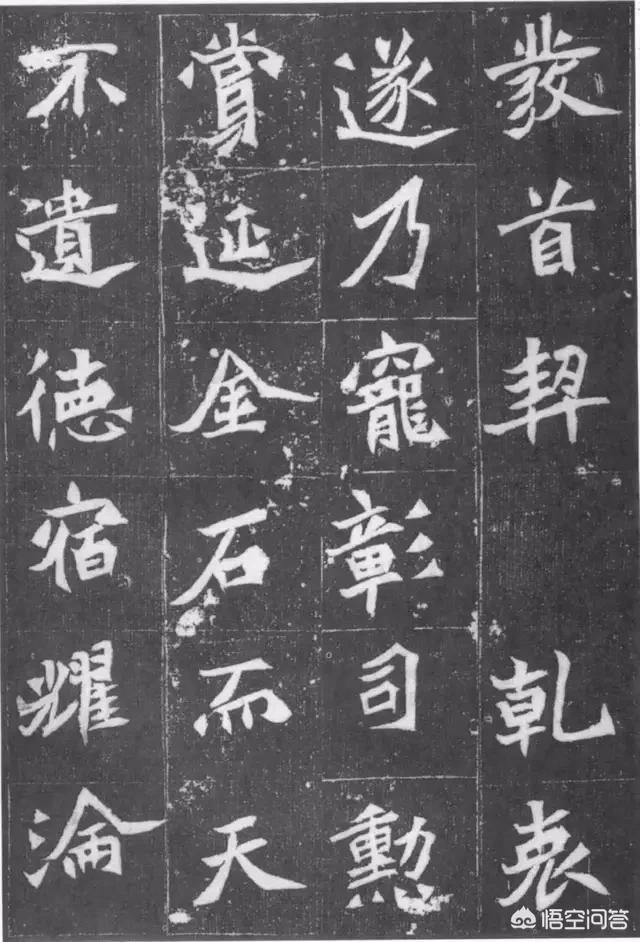 發首契 乾衷
遂乃寵彰司勳
賞延金石而天
不遺徳宿耀淪
悟空问答